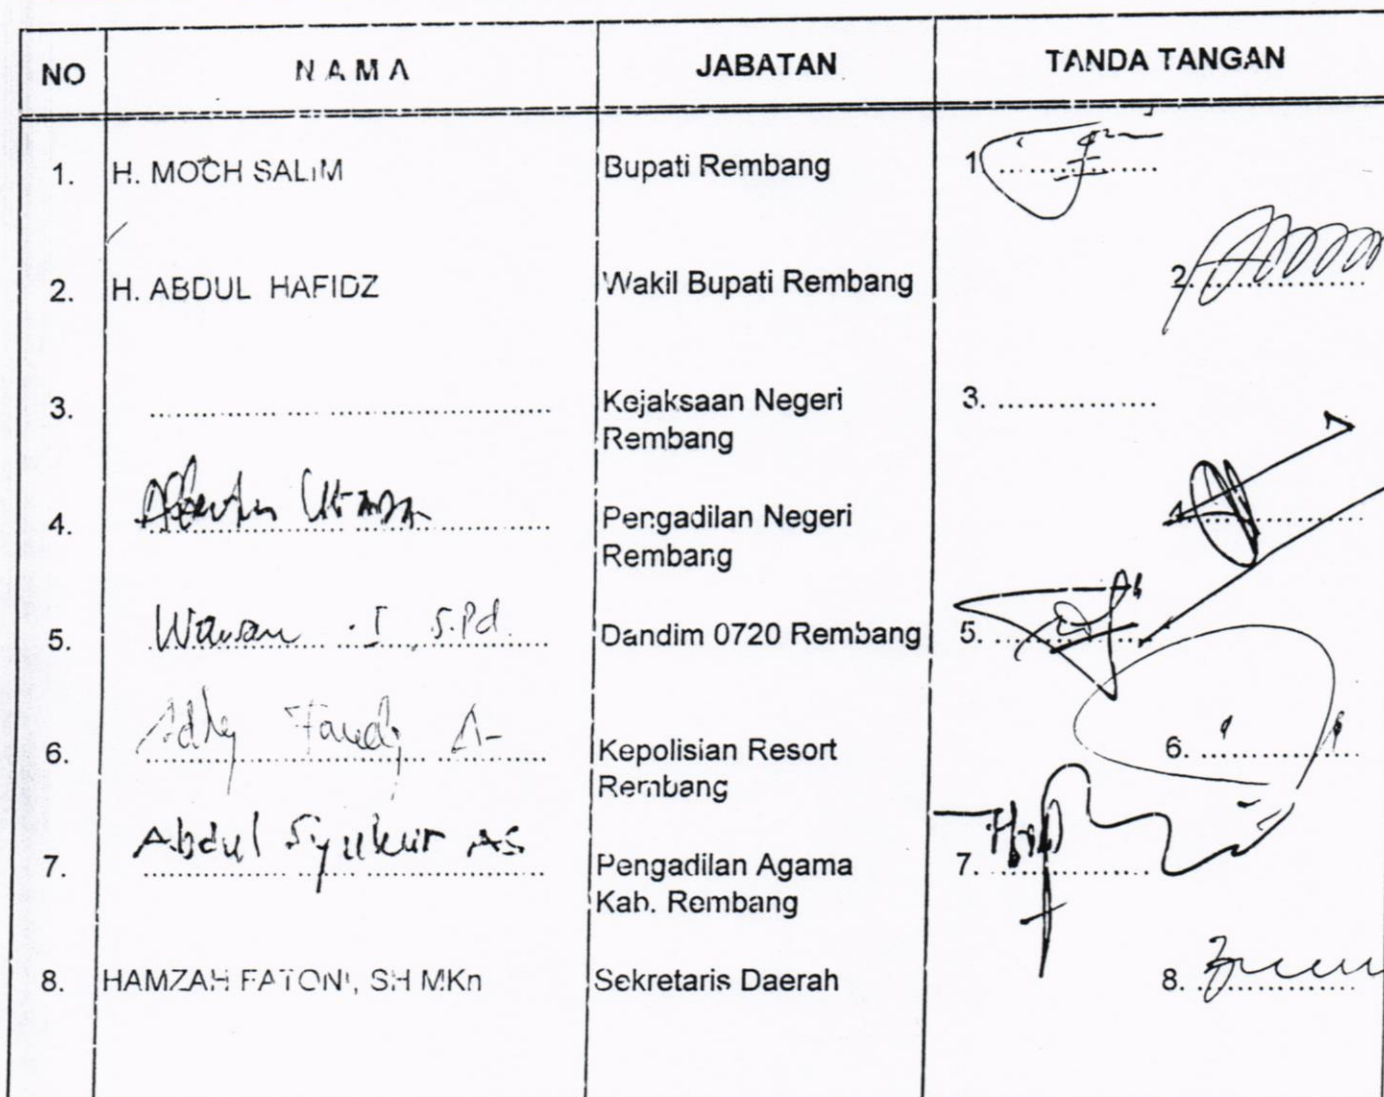 NO NAMA JABATAN TANDA TANGAN
1. H. MOCH SALIM Bupati Rembang 1. ....................
2. H. ABDUL HAFIDZ Wakil Bupati Rembang 2. ....................
3. .................... Kejaksaan Negeri 3. ....................
Rembang
4. Pengadilan Negeri 4. ....................
Rembang
5. Wawan .I S.Pd. Dandim 0720 Rembang 5. ....................
6. Kepolisian Resort 6. ....................
Rembang
7. Abdul Syukur AS Pengadilan Agama 7. ....................
Kab. Rembang
8. HAMZAH FATONI, SH MKn Sekretaris Daerah 8. ....................